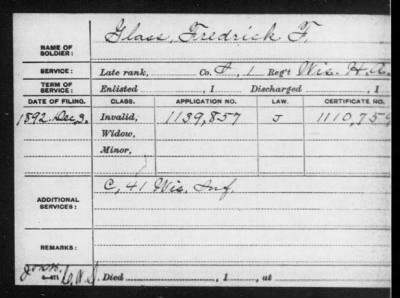 Glass, Fredrick F.
NAME OF SOLDIER:
SERVICE: Late rank, Co. F, 1 Reg't Wis. H.A.
TERM OF SERVICE: Enlisted , 1 Discharged , 1
DATE OF FILING. CLASS. APPLICATION NO. LAW. CERTIFICATE NO.
1892 Dec 3. Invalid, 1139,857 J 1110,759
Widow,
Minor,
C, 41 Wis. Inf.
ADDITIONAL SERVICES:
REMARKS:
Died , 1 , at